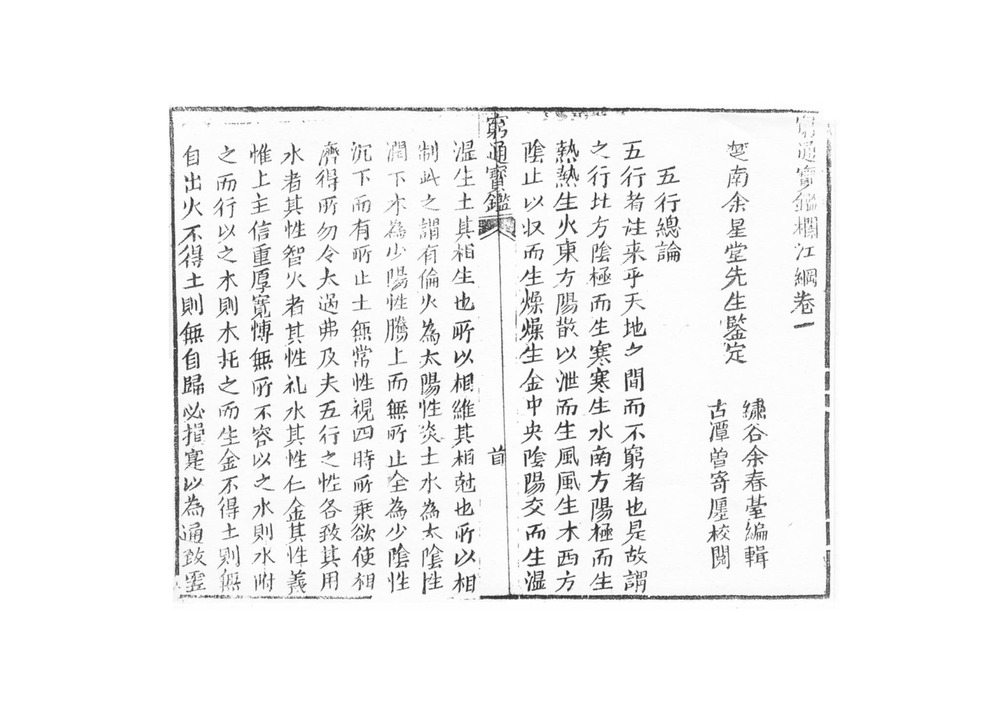 窮通寳鑑欄江綱卷一
楚南余星堂先生鍳定
繡谷余春䑓編輯
古潭曾寄壓校閱
五行總論
五行者往来乎天地之間而不窮者也是故謂
之行北方陰極而生寒寒生水南方陽極而生
熱熱生火東方陽散以泄而生風風生木西方
陰止以収而生燥燥生金中央陰陽交而生湿
窮通寳鑑
首
湿生土其相生也所以相維其相尅也所以相
制此之謂有倫火為太陽性炎上水為太陰性
潤下木為少陽性騰上而無所止全為少陰性
沉下而有所止土無常性視四時所乗欲使相
濟得所勿令太過弗及夫五行之性各致其用
水者其性智火者其性礼水其性仁金其性義
惟上主信重厚寛慱無所不容以之水則水附
之而行以之木則木托之而生金不得土則無
自出火不得土則無自歸必損寔以為通致虚